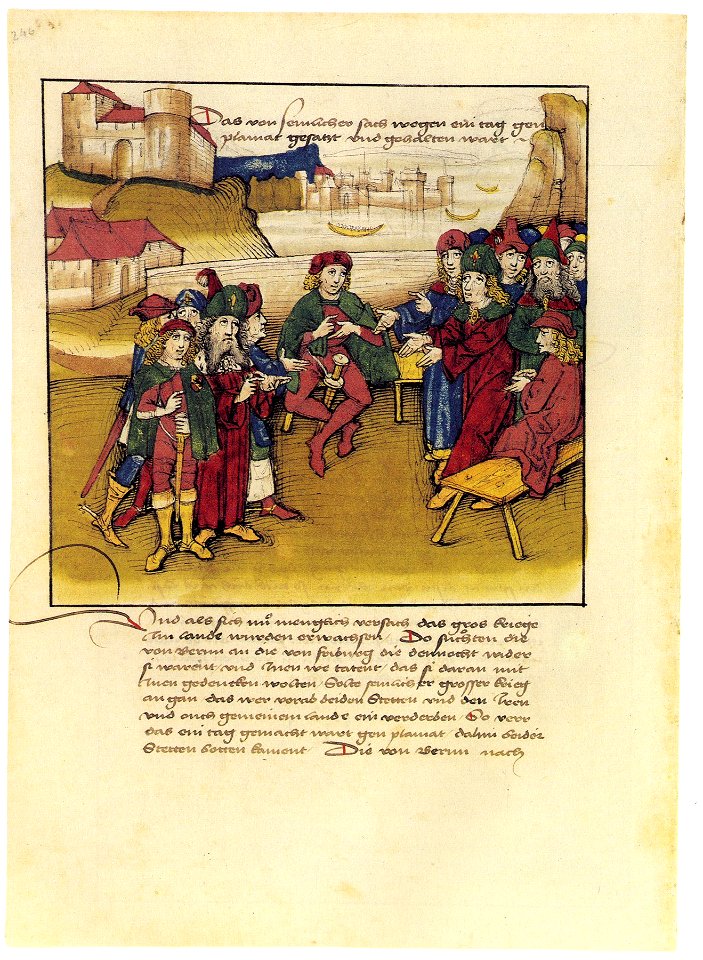 246
Das von semlicher sach wegen ein tag gen
plamat gesatzt und gehalten wart
Und als sich nů menglich versach das gros kriege
Im lande wurden erwachsen. Do sůchten die
von Bernn an die von friburg die dennocht wider
si warent und Inen we tatent das si daran mit
Inen gedencken wolten. Solte semlicher grosser krieg
an gan das wer vorab beiden Stetten und den Iren
und ouch gemeinem lande ein verderben. So verr
das ein tag gemacht wart gen plamat. dahin beider
Stetten botten kament. Die von Bernn nach